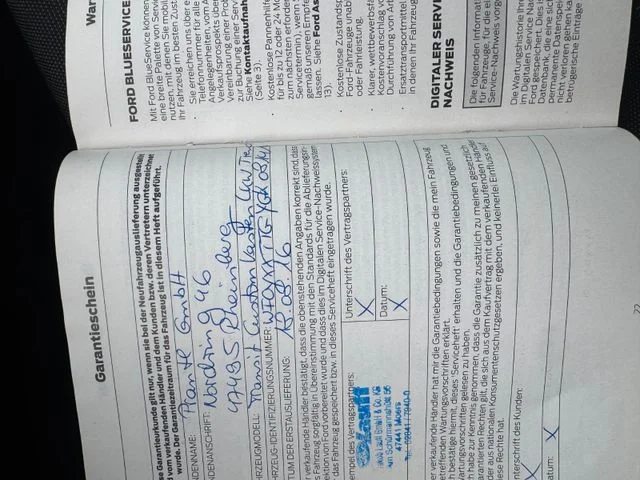 Garantieschein
se Garantieurkunde gilt nur, wenn sie bei der Neufahrzeugauslieferung ausgestellt
nd dem verkaufenden Händler und dem Kunden bzw. deren Vertretern unterzeichnet
wurde. Der Garantiezeitraum für das Fahrzeug ist in diesem Heft aufgeführt.
NDENNAME: Plante GmbH
NDENANSCHRIFT: Nordring 46
47495 Rheinberg
HRZEUGMODELL: Transit Custom Kasten LKW
HRZEUG-IDENTIFIZIERUNGSNUMMER:
TUM DER ERSTAUSLIEFERUNG: 15.09.16
r verkaufende Händler bestätigt, dass die obenstehenden Angaben korrekt sind, dass
s Fahrzeug sorgfältig in Übereinstimmung mit den Standards für die Ablieferungsins
ektion von Ford vorbereitet wurde und dass dies im Digitalen Service-Nachweissystem
das Fahrzeug gespeichert bzw. in dieses Serviceheft eingetragen wurde.
empel des Vertragspartners:
Unterschrift des Vertragspartners:
X
Datum:
X
47441 Moers
er verkaufende Händler hat mir die Garantiebedingungen sowie die mein Fahrzeug
etreffenden Wartungsvorschriften erklärt.
h bestätige hiermit, dieses 'Serviceheft' erhalten und die Garantiebedingungen und
Wartungsvorschriften gelesen zu haben.
h habe zur Kenntnis genommen, dass die Garantie zusätzlich zu meinen gesetzlich
arantierten Rechten gilt, die sich aus dem Kaufvertrag mit dem verkaufenden Händ
der aus nationalen Konsumentenschutzgesetzen ergeben, und keinerlei Einfluss au
iese Rechte hat.
nterschrift des Kunden:
X
Datum:
X
22
War
FORD BLUESERVICE
Mit Ford BlueService können
eine breite Palette von Servi
nutzen, mit denen Sie mobil
Ihr Fahrzeug im besten Zusta
Sie erreichen uns über e
Telefonnummer für alle
Angelegenheiten, vom A
Verkaufsprospekts über
Vereinbarung einer Prob
zur Buchung einer Servi
Siehe Kontaktaufnah
(Seite 3).
Kostenlose Pannenhilfe
für bis zu 12 oder 24 Mo
zum nächsten erforder
Servicetermin), wenn S
gemäß unseren Empfe
lassen. Siehe Ford As
13).
Kostenlose Zustandsp
Ford-Fahrzeuge unab
oder Fahrleistung.
Klarer, wettbewerbsfä
Kostenvoranschlag vo
Durchführung von Arb
Ersatztransportmittel
in denen Ihr Fahrzeug
DIGITALER SERV
NACHWEIS
Die folgenden Informat
für Fahrzeuge, für die ei
Service-Nachweis vorge
Die Wartungshistorie Ihre
im Digitalen Service Nac
Ford gespeichert. Dies is
Datenbank, die eine sich
permanente Datenspeich
nicht verloren gehen ka
betrügerische Einträge